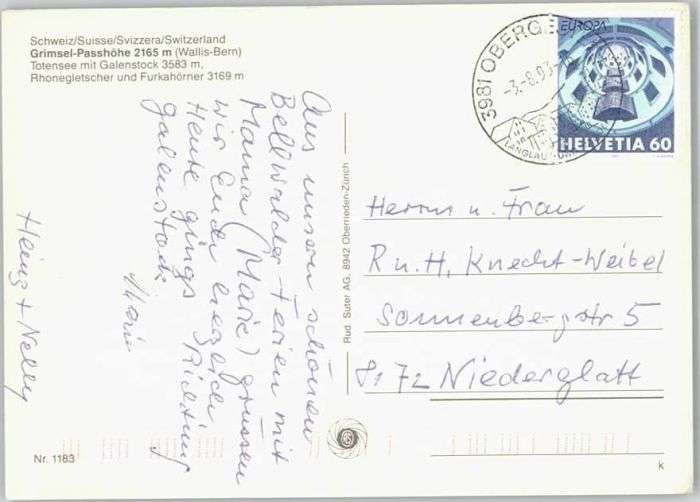 Schweiz/Suisse/Svizzera/Switzerland
Grimsel-Passhöhe 2165 m (Wallis-Bern)
Totensee mit Galenstock 3583 m,
Rhonegletscher und Furkahörner 3169 m
Aus unsern schönen
Bellwalder Ferien mit
Mama (Marie) grüssen
wir Euch herzlich
Heute gings Richtung
Galenstock
Marie
Heinz + Nelly
Rud. Suter AG, 8942 Oberrieden-Zürich
3981 OBERGE
-3.-8.93-
LANGLAUF
EUROPA
HELVETIA 60
Herrn u. Frau
R u. H. Knecht-Weibel
Sonnenbergstr 5
8172 Niederglatt
Nr. 1183
k